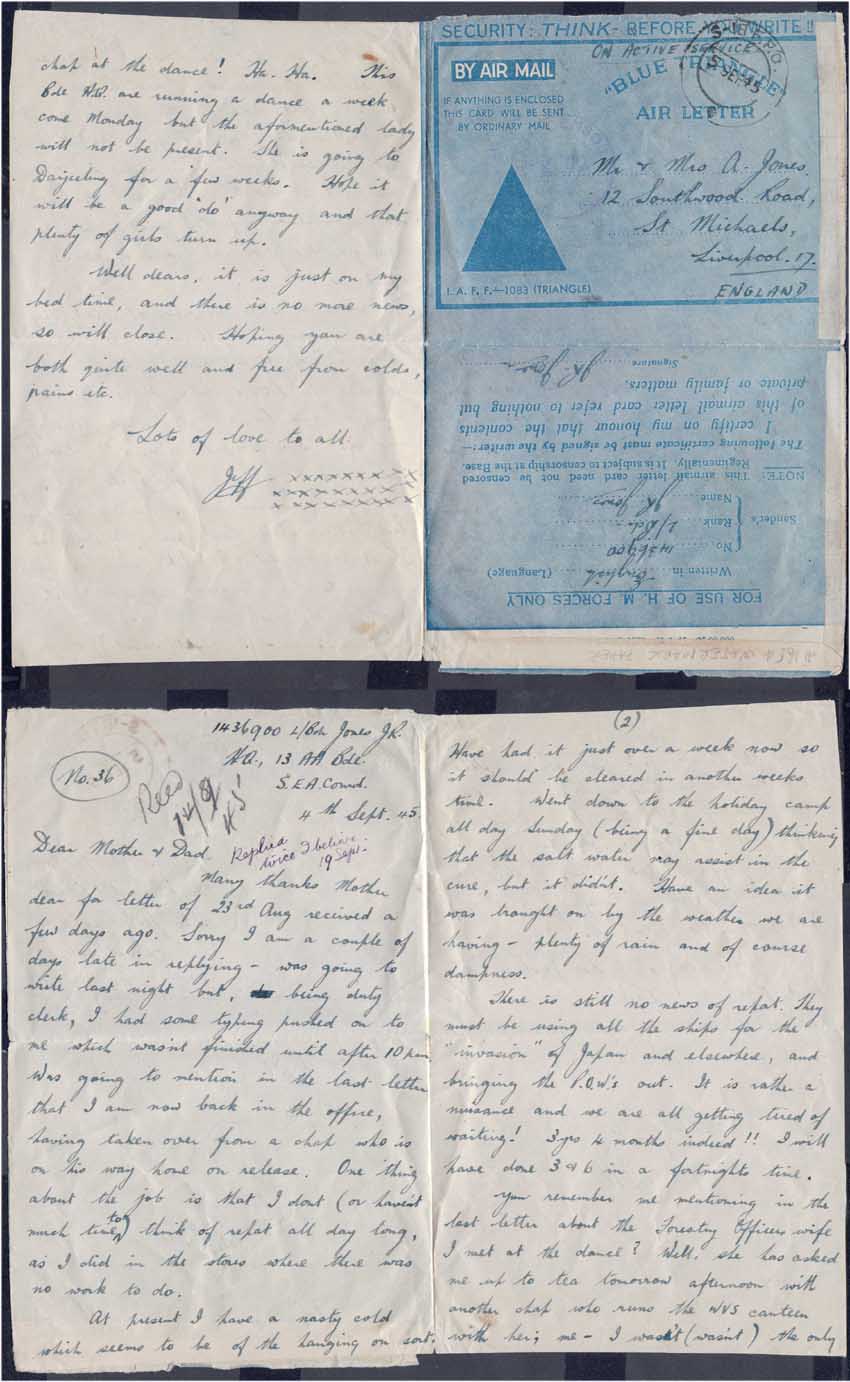 chap at the dance! Ha. Ha. This
Bde H.Q. are running a dance a week
come Monday but the aformentioned lady
will not be present. She is going to
Darjeeling for a few weeks. Hope it
will be a good 'do' anyway and that
plenty of girls turn up.
Well dears, it is just on my
bed time, and there is no more news,
so will close. Hoping you are
both quite well and free from colds,
pains etc.
Lots of love to all.
Jeff xxxxxxxx
xxxxxxxxx
xxxxxxxx
SECURITY: THINK - BEFORE YOU WRITE !!
ON ACTIVE SERVICE
BY AIR MAIL
"BLUE TRIANGLE"
AIR LETTER
IF ANYTHING IS ENCLOSED
THIS CARD WILL BE SENT
BY ORDINARY MAIL
5 SEP 45
Mr & Mrs A. Jones
12 Southwood Road,
St Michaels,
Liverpool. 17.
ENGLAND
I. A. F. F.—1083 (TRIANGLE)
FOR USE OF H. M. FORCES ONLY
Written in English (Language)
Sender's
No. 1436900
Rank L/Bdr
Name JR. Jones
NOTE: This airmail letter card need not be censored
Regimentally. It is subject to censorship at the Base.
The following certificate must be signed by the writer:—
I certify on my honour that the contents
of this airmail letter card refer to nothing but
private or family matters.
Signature JR. Jones
No. 36
1436900 L/Bdr Jones JR.
H.Q., 13 AA Bde.
S.E.A. Comd.
4th Sept. 45.
Recd
14/9/45
Replied
twice I believe.
19 Sept.
Dear Mother & Dad,
Many thanks Mother
dear for letter of 23rd Aug received a
few days ago. Sorry I am a couple of
days late in replying - was going to
write last night but, being duty
clerk, I had some typing pushed on to
me which wasn't finished until after 10 pm.
Was going to mention in the last letter
that I am now back in the office,
having taken over from a chap who is
on his way home on release. One thing
about the job is that I dont (or havent
much time to) think of repat all day long,
as I did in the stores where there was
no work to do.
At present I have a nasty cold
which seems to be of the hanging on sort.
(2)
Have had it just over a week now so
it should be cleared in another weeks
time. Went down to the holiday camp
all day Sunday (being a fine day) thinking
that the salt water may assist in the
cure, but it didn't. Have an idea it
was brought on by the weather we are
having - plenty of rain and of course
dampness.
There is still no news of repat. They
must be using all the ships for the
"invasion" of Japan and elsewhere, and
bringing the P.O.W's out. It is rather a
nuisance and we are all getting tired of
waiting! 3 yrs 4 months indeed!! I will
have done 3 & 6 in a fortnights time.
You remember me mentioning in the
last letter about the Forestry Officers wife
I met at the dance? Well, she has asked
me up to tea tomorrow afternoon with
another chap who runs the WVS canteen
with her; me - I wasn't (wasn't) the only